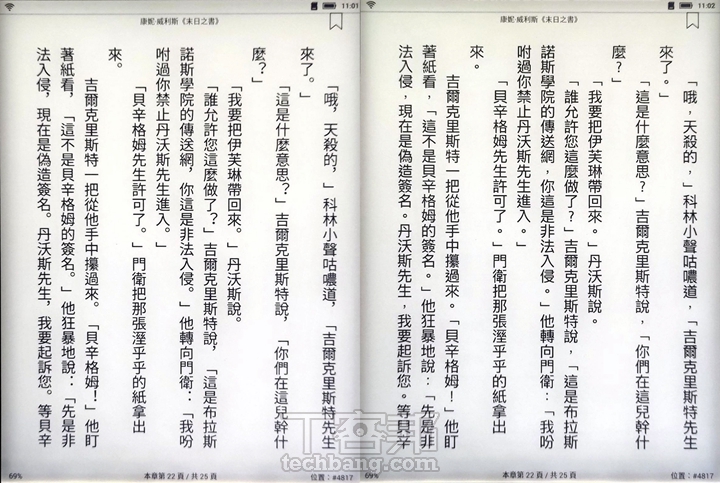 11:01
康妮·威利斯《末日之書》
「哦，天殺的，」科林小聲咕噥道，「吉爾克里斯特先生
來了。」
「這是什麼意思？」吉爾克里斯特說，「你們在這兒幹什
麼？」
「我要把伊芙琳帶回來。」丹沃斯說。
「誰允許您這麼做了？」吉爾克里斯特說，「這是布拉斯
諾斯學院的傳送網，你這是非法入侵。」他轉向門衛：「我吩
咐過你禁止丹沃斯先生進入。」
「貝辛格姆先生許可了。」門衛把那張溼乎乎的紙拿出
來。
吉爾克里斯特一把從他手中攫過來。「貝辛格姆！」他盯
著紙看，「這不是貝辛格姆的簽名。」他狂暴地說：「先是非
法入侵，現在是偽造簽名。丹沃斯先生，我要起訴您。等貝辛
69%
本章第 22 頁 / 共 25 頁
位置：#4817
11:02
康妮·威利斯《末日之書》
「哦，天殺的，」科林小聲咕噥道，「吉爾克里斯特先生
來了。」
「這是什麼意思？」吉爾克里斯特說，「你們在這兒幹什
麼？」
「我要把伊芙琳帶回來。」丹沃斯說。
「誰允許您這麼做了？」吉爾克里斯特說，「這是布拉斯
諾斯學院的傳送網，你這是非法入侵。」他轉向門衛：「我吩
咐過你禁止丹沃斯先生進入。」
「貝辛格姆先生許可了。」門衛把那張溼乎乎的紙拿出
來。
吉爾克里斯特一把從他手中攫過來。「貝辛格姆！」他盯
著紙看，「這不是貝辛格姆的簽名。」他狂暴地說：「先是非
法入侵，現在是偽造簽名。丹沃斯先生，我要起訴您。等貝辛
69%
本章第 22 頁 / 共 25 頁
位置：#4817
T客邦
techbang.com